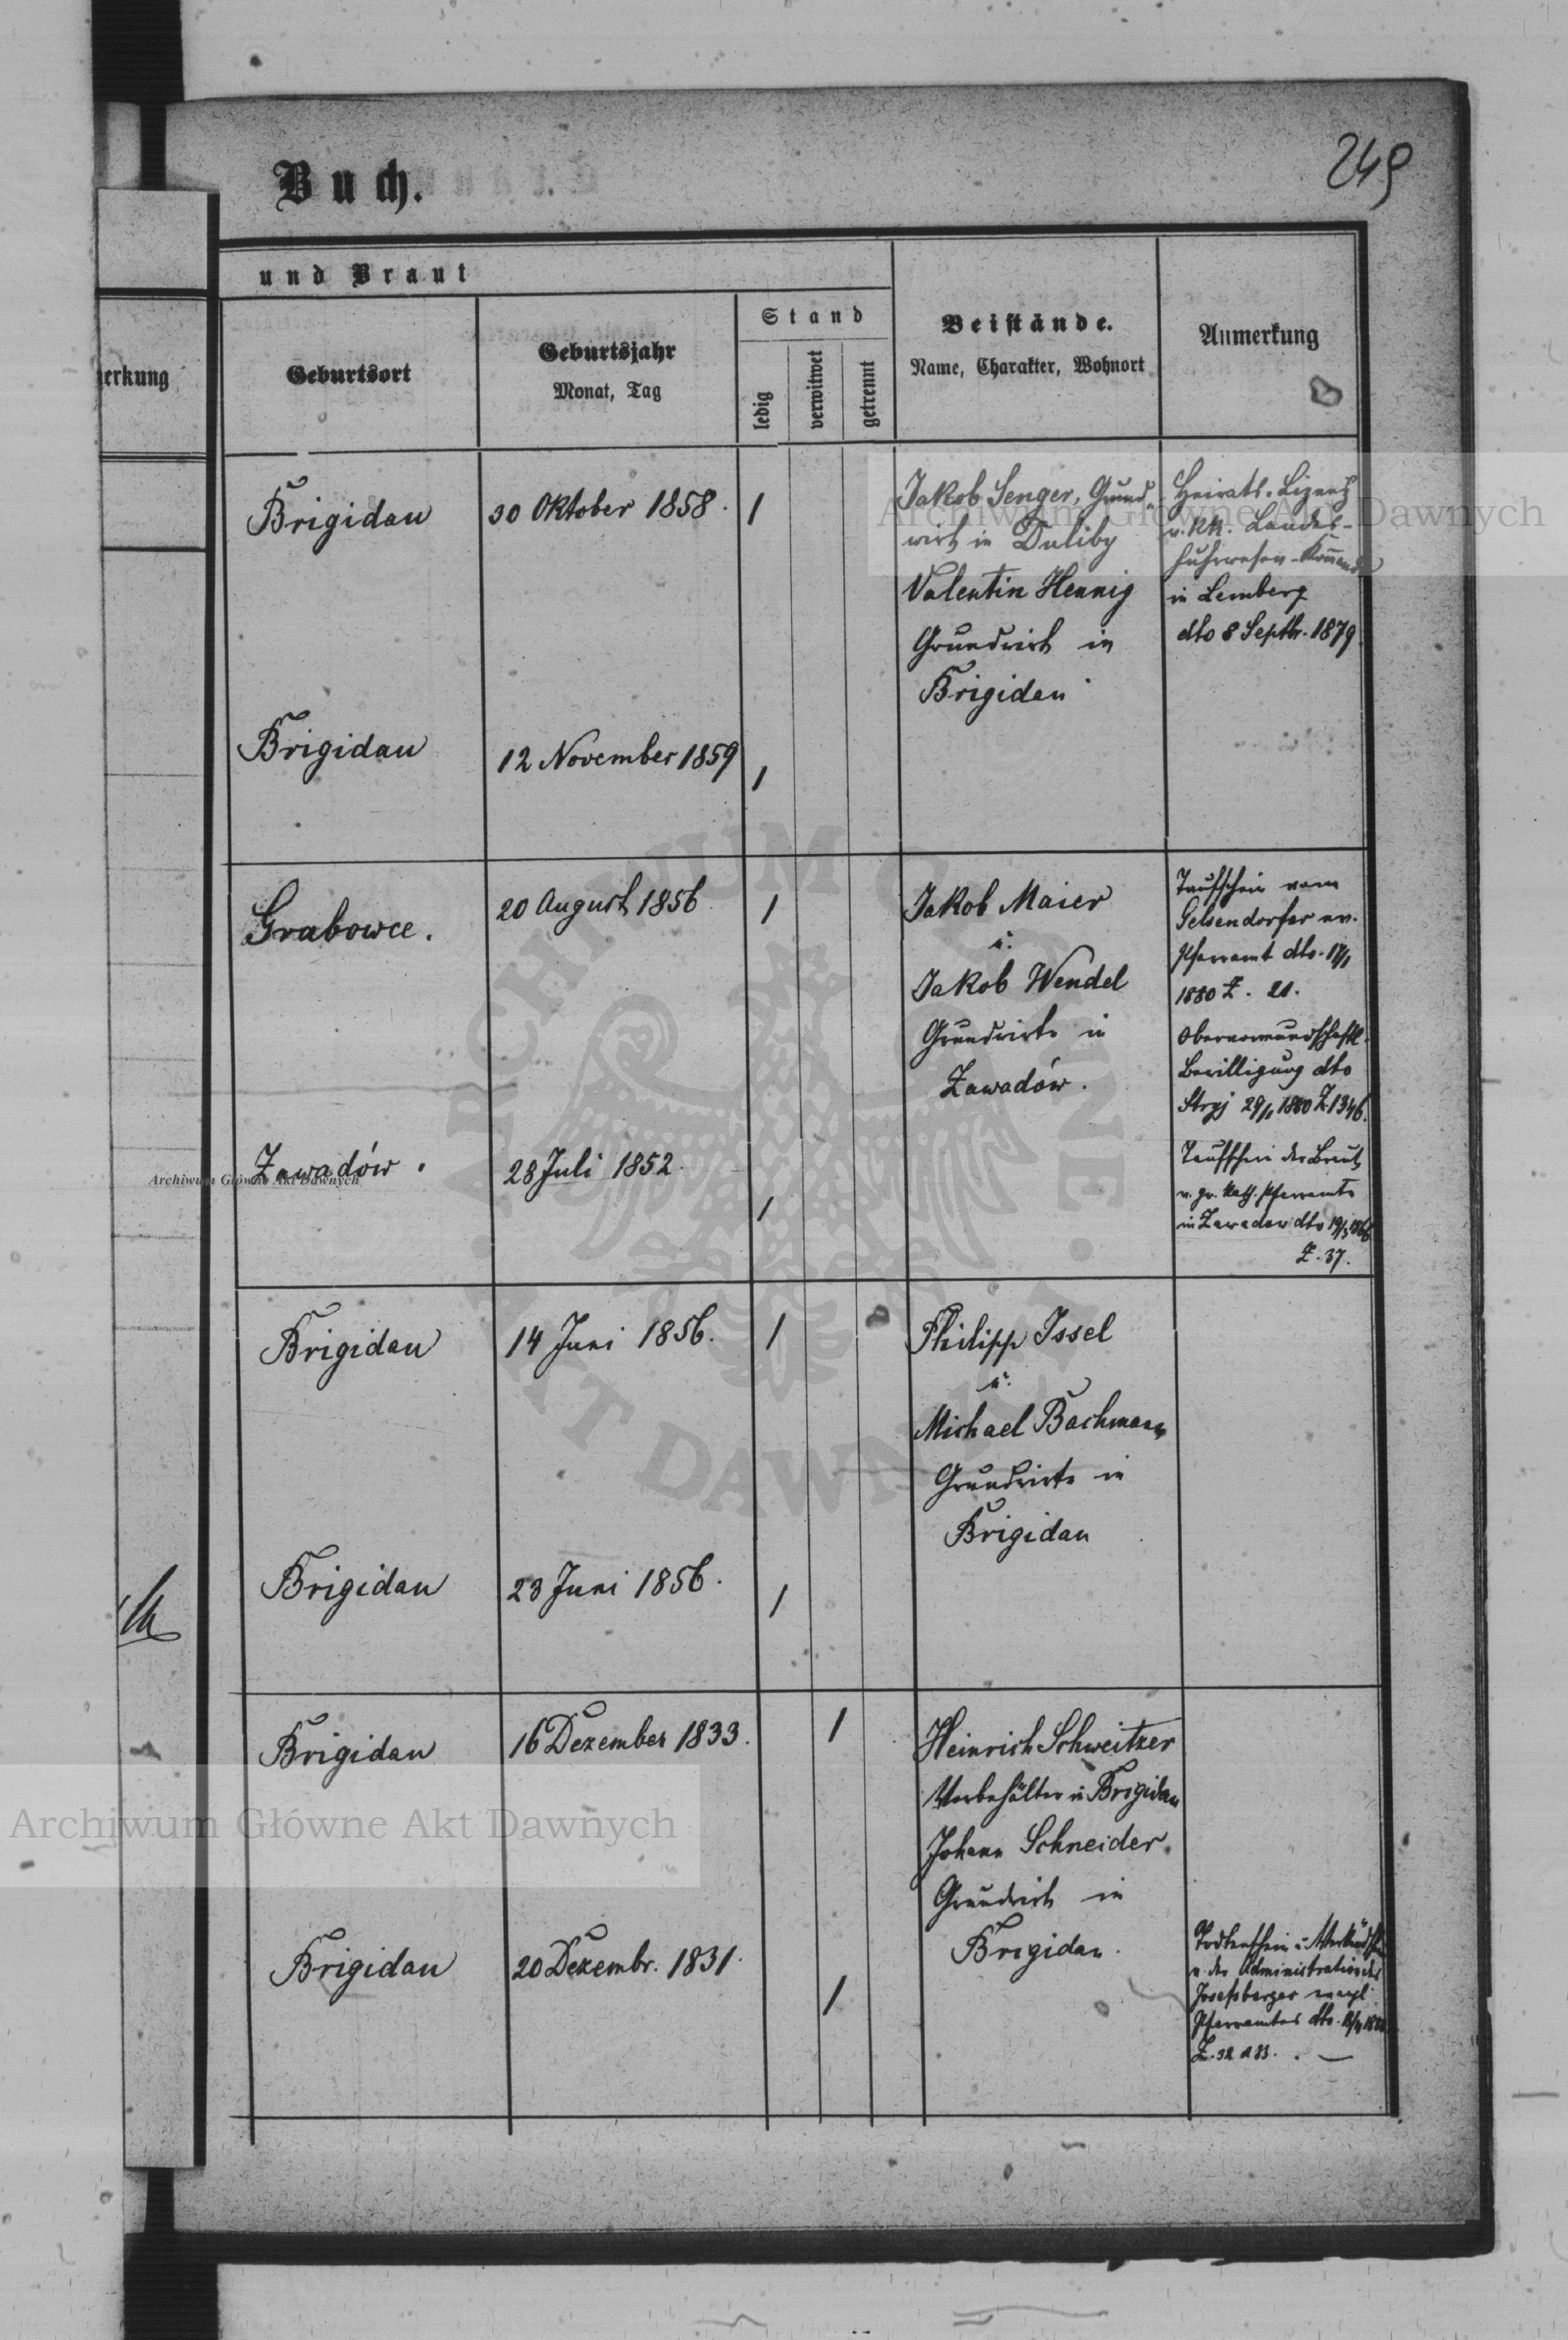 249
Buch.
und Braut
Geburtsort
Geburtsjahr
Monat, Tag
Stand
ledig
verwitwet
getrennt
Beistände.
Name, Charakter, Wohnort
Anmerkung
erkung
Brigidau
30 Oktober 1858.
1
Jakob Senger, Grund-
wirt in Duliby
Valentin Hennig
Grundwirt in
Brigidau
Heirats-Lizenz
v. kk. Landes-
fuhrwesen-
in Lemberg
dto 8 Septb. 1879
Brigidau
12 November 1859
1
Grabowce.
20 August 1856
1
Jakob Maier
u.
Jakob Wendel
Grundwirte in
Zawadów.
Taufschein vom
Gelsendorfer ev.
Pfarramt dto. 17/1
1880 Z. 21.
Obervormundschaftl.
Bewilligung dto
Stryj 29/1 1880 Z 1346.
Zawadów.
28 Juli 1852.
1
Taufschein der Braut
v. gr. kath. Pfarramte
in Zawadow dto
Z. 37.
Brigidau
14 Juni 1856.
1
Philipp Issel
u.
Michael Bachmann
Grundwirte in
Brigidau
Brigidau
23 Juni 1856.
1
Brigidau
16 Dezember 1833.
1
Heinrich Schweitzer
Vorbehälter in Brigidau
Johann Schneider
Grundwirt in
Brigidau.
Brigidau
20 Dezembr. 1831.
1
Todtenschein u.
v. der Administration des
Josefsberger evangl.
Pfarramtes dto.
Z. 32 33.
Archiwum Główne Akt Dawnych
Archiwum Główne Akt Dawnych
Archiwum Główne Akt Dawnych
ARCHIWUM GŁÓWNE AKT DAWNYCH